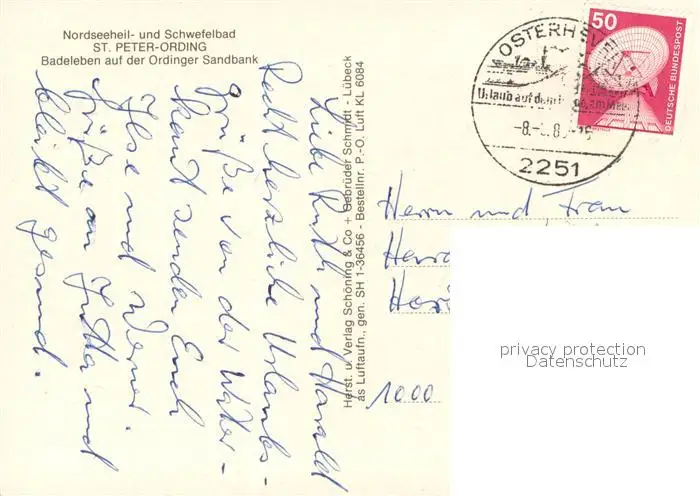 Nordseeheil- und Schwefelbad
ST. PETER-ORDING
Badeleben auf der Ordinger Sandbank
Liebe Ruth und Harald
Recht herzliche Urlaubs-
Grüße von der Water-
kant senden Euch
Ilse und Werner.
Grüße an Jutta und
bleibt gesund.
Herst. u. Verlag Schöning & Co + Gebrüder Schmidt - Lübeck
as Luftaufn., gen. SH 1-36456 - Bestellnr. P.-O. Luft KL 6084
OSTERHEVER
Urlaub auf dem
-8.-
2251
50
DEUTSCHE BUNDESPOST
Herrn und Frau
1000
privacy protection
Datenschutz